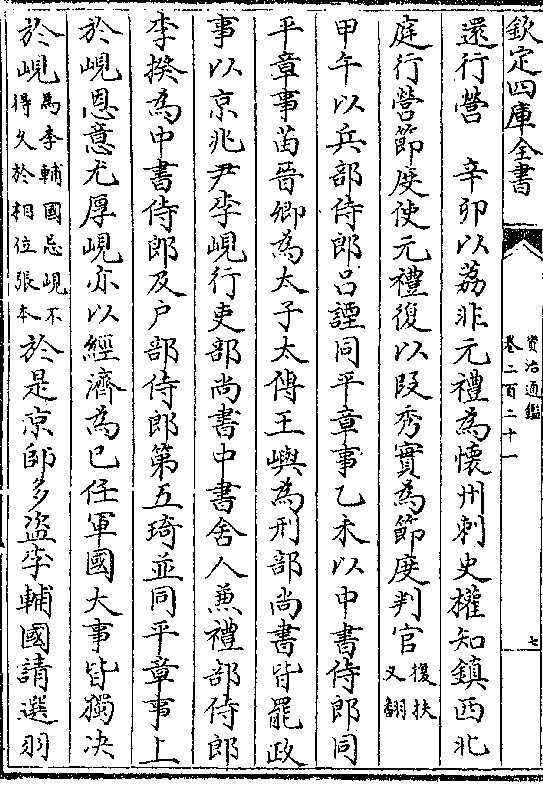 欽定四庫全書
資治通鑑
卷二百二十一
七
還行營　辛卯以荔非元禮為懷州刺史權知鎮西北
庭行營節度使元禮復以段秀實為節度判官復扶
又翻
甲午以兵部侍郎呂諲同平章事乙未以中書侍郎同
平章事苗晉卿為太子太傅王嶼為刑部尚書皆罷政
事以京兆尹李峴行吏部尚書中書舍人兼禮部侍郎
李揆為中書侍郎及户部侍郎第五琦並同平章事上
於峴恩意尤厚峴亦以經濟為已任軍國大事皆獨决
於峴為李輔國忌峴不
得久於相位張本於是京師多盗李輔國請選羽